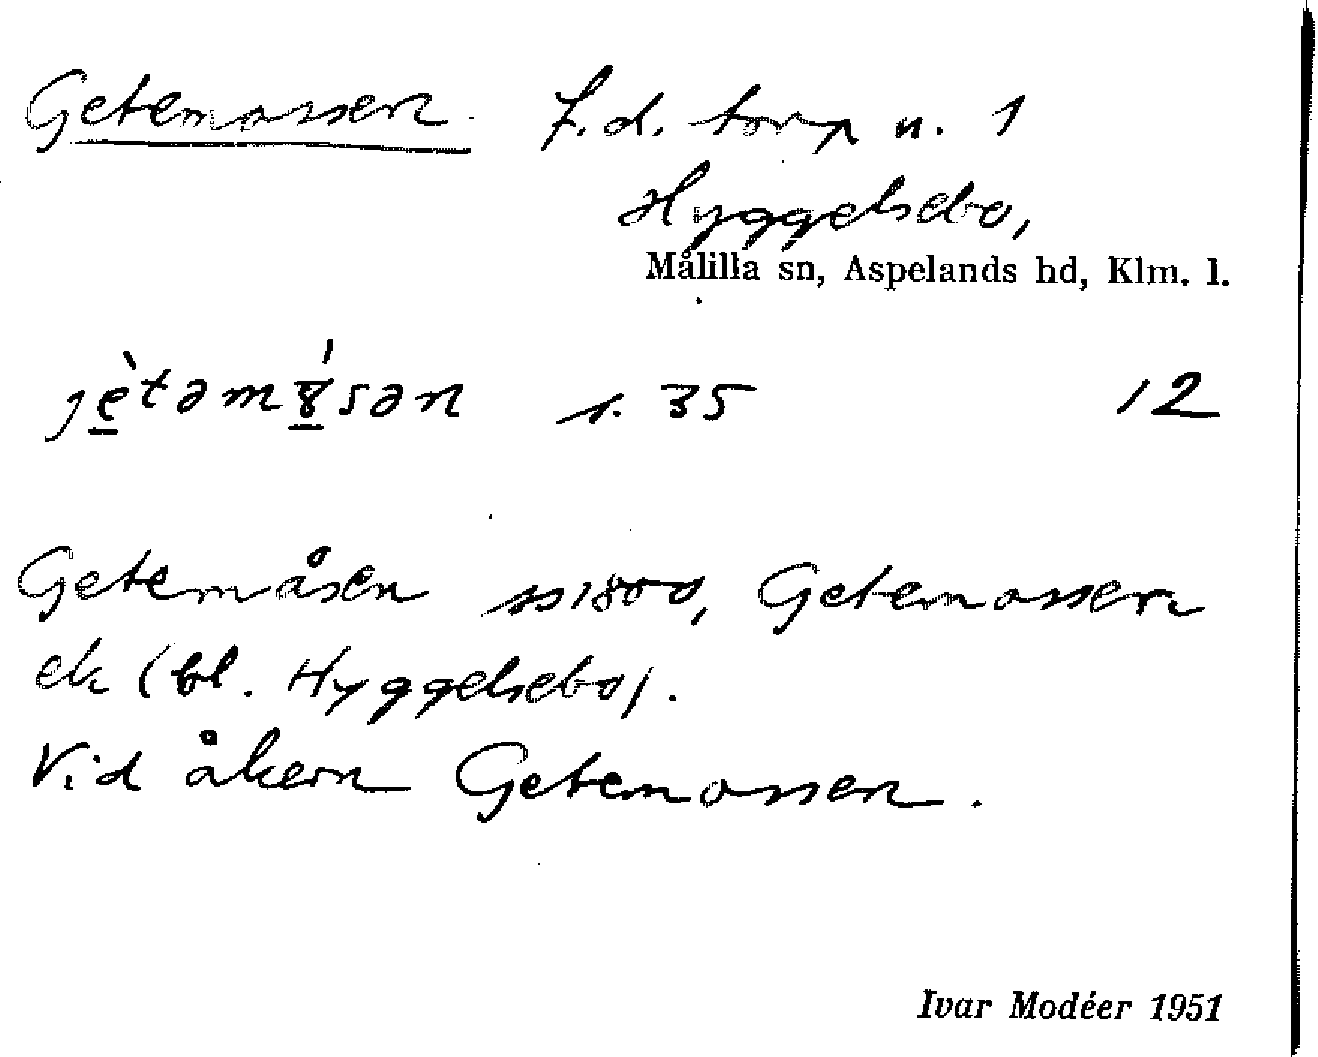 Getemossen f.d. torp u. 1
Hyggelsebo,
Målilla sn, Aspelands hd, Klm. l.
jètəm8́sən s. 35 12
Getemåsen ss1800, Getemossen
ek (bl. Hyggelsebo).
Vid åkern Getemossen.
Ivar Modéer 1951